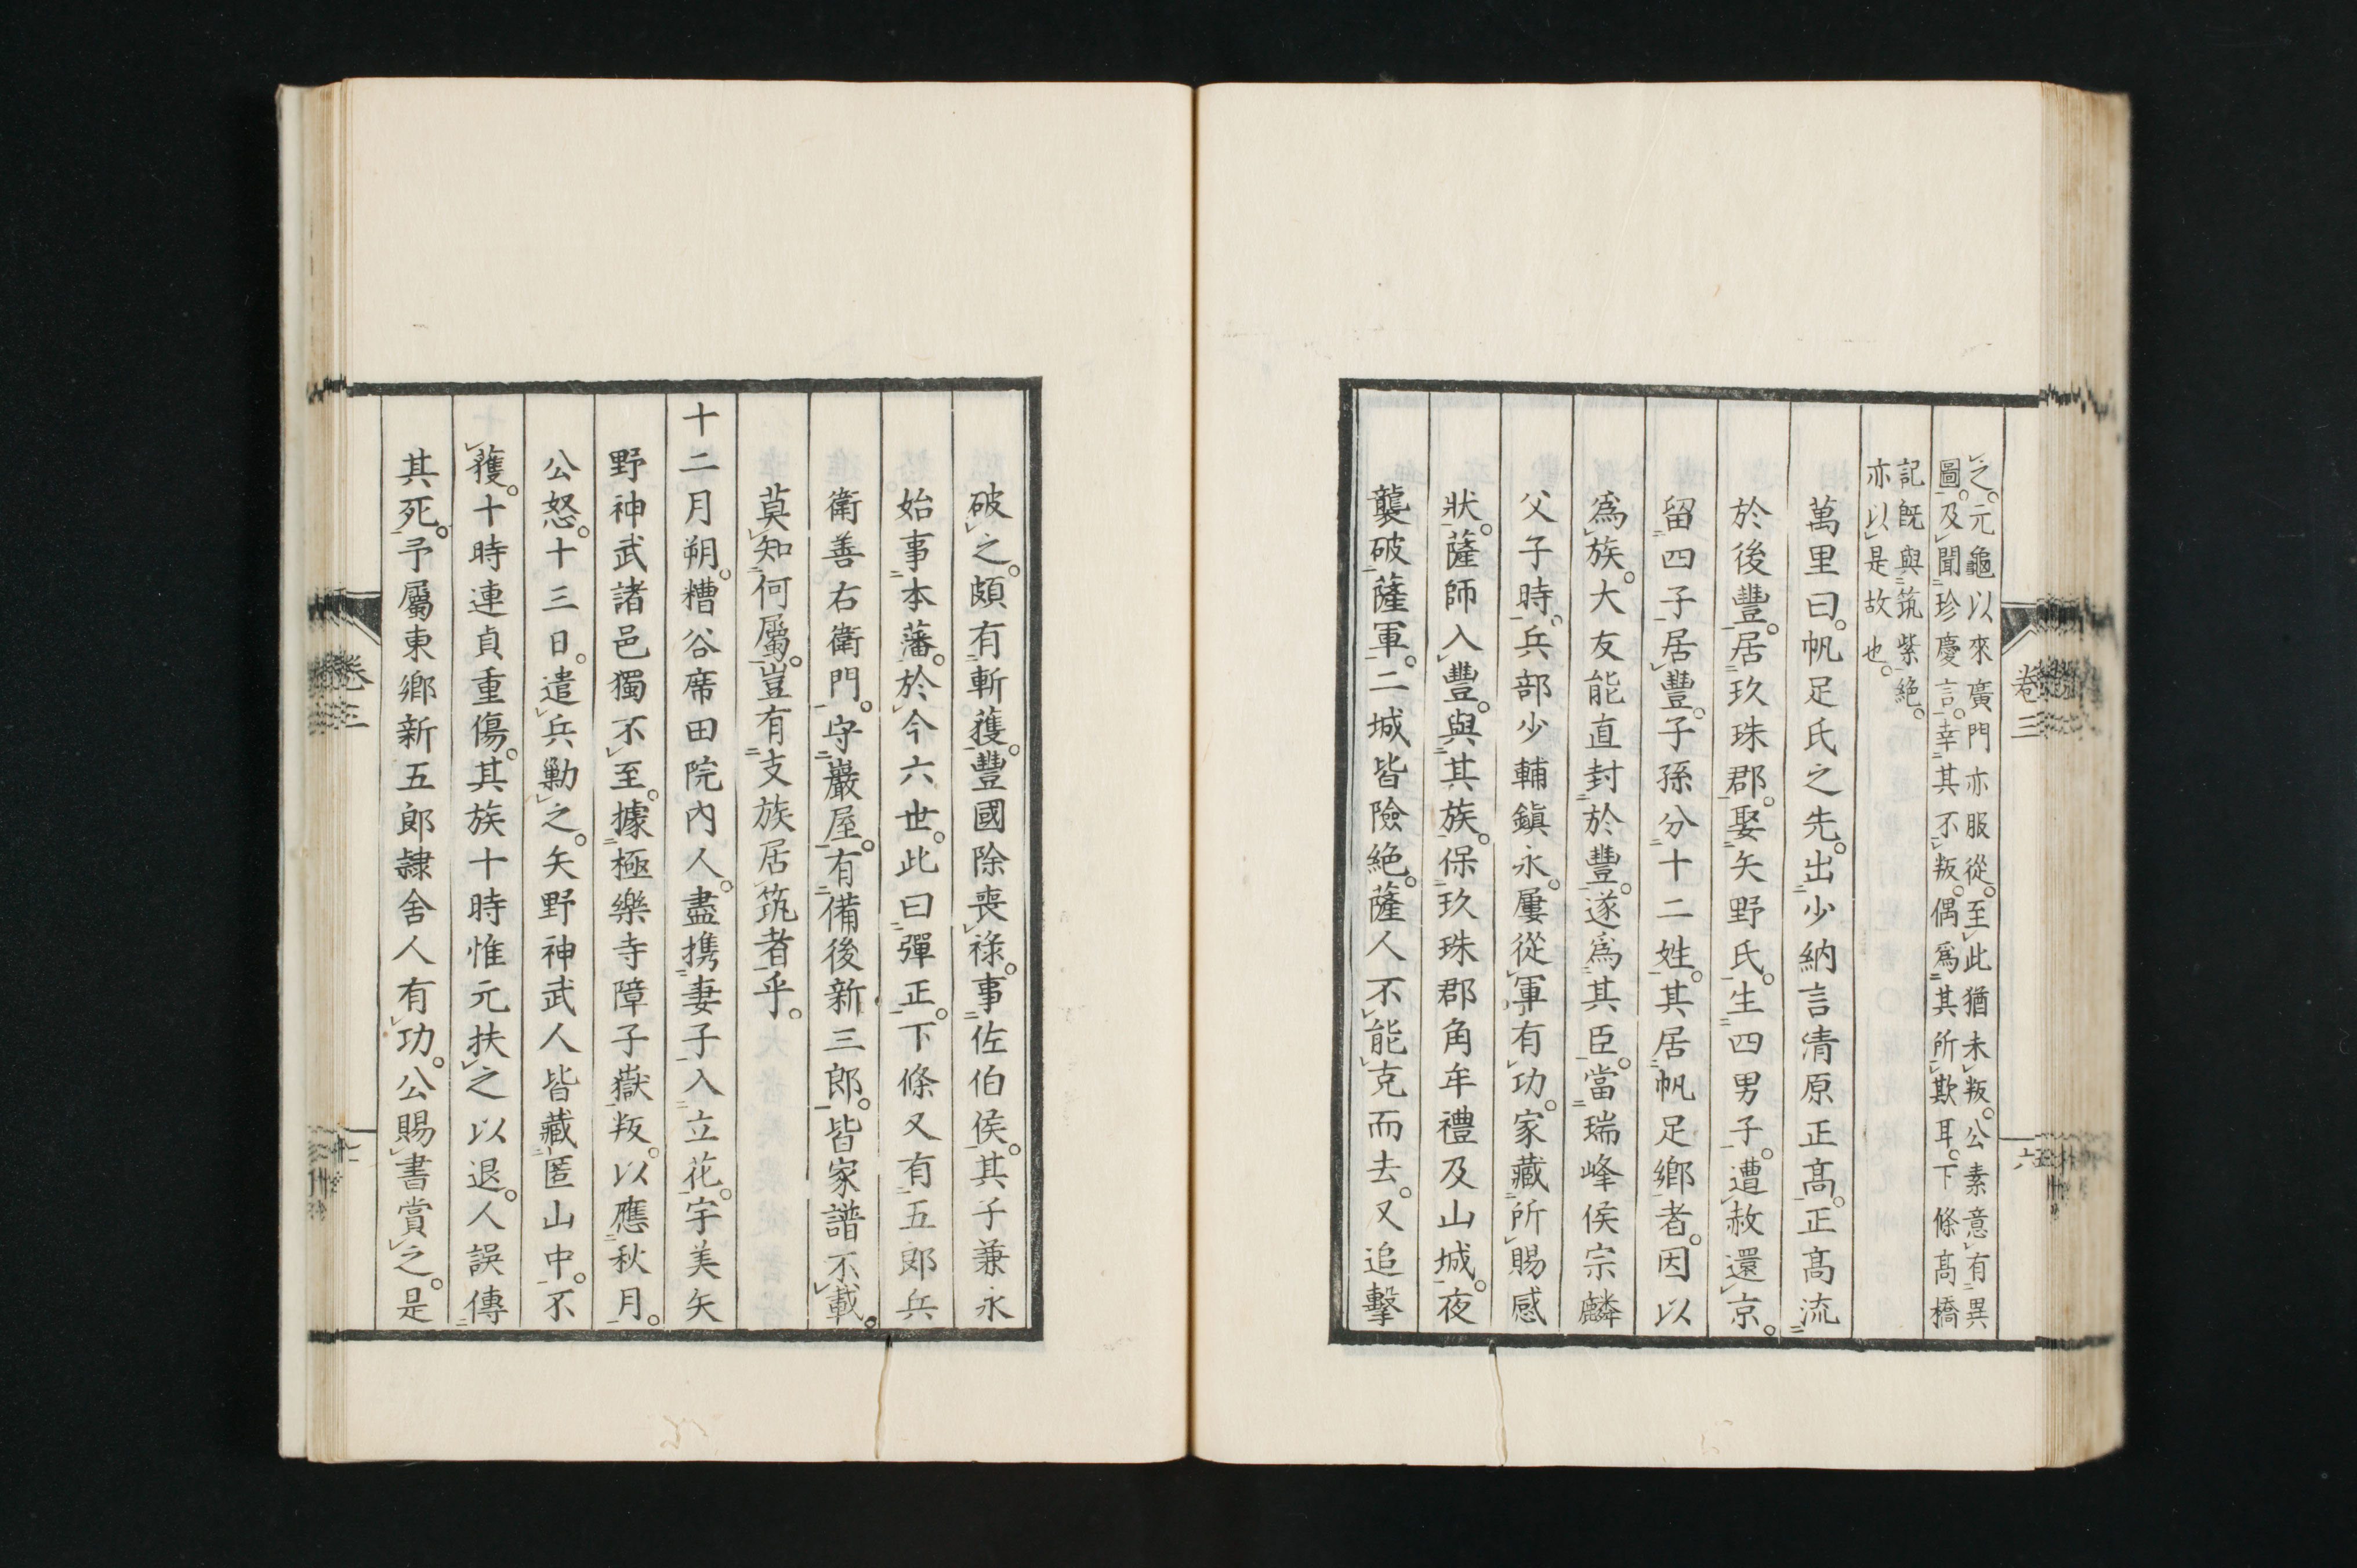 之。元龜以來廣門亦服從。至此猶未叛。公素意有異
圖。及聞珍慶言。幸其不叛。偶爲其所欺耳。下條髙橋
記既與筑紫絶。
亦以是故也。
萬里曰。帆足氏之先。出少納言清原正髙。正髙流
於後豐。居玖珠郡。娶矢野氏。生四男子。遭赦還京。
留四子居豐。子孫分十二姓。其居帆足鄉者。因以
爲族。大友能直封於豐。遂爲其臣。當瑞峰侯宗麟
父子時。兵部少輔鎭永。屢從軍有功。家藏所賜感
狀。薩師入豐。與其族。保玖珠郡角牟禮及山城。夜
襲破薩軍。二城皆險絶。薩人不能克而去。又追擊
破之。頗有斬獲。豐國除喪祿。事佐伯侯。其子兼永
始事本藩。於今六世。此曰彈正。下條又有五郎兵
衛善右衛門。守巖屋。有備後新三郎。皆家譜不載。
莫知何屬。豈有支族居筑者乎。
十二月朔。糟谷席田院內人。盡携妻子入立花。宇美矢
野神武諸邑獨不至。據極樂寺障子嶽叛。以應秋月。
公怒。十三日。遣兵勦之。矢野神武人皆藏匿山中。不
獲。十時連貞重傷。其族十時惟元扶之以退。人誤傳
其死。予屬東鄉新五郎隷舍人有功。公賜書賞之。是
卷三
六
卷三